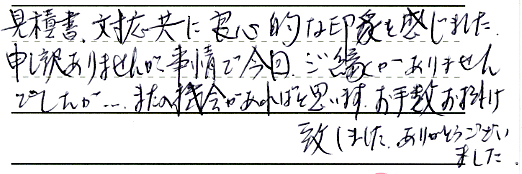 見積書、対応共に良心的な印象を感じました。
申し訳ありませんが事情で今回、ご縁がありません
でしたが…、またの機会があればと思います。お手数お掛け
致しました。ありがとうござい
ました